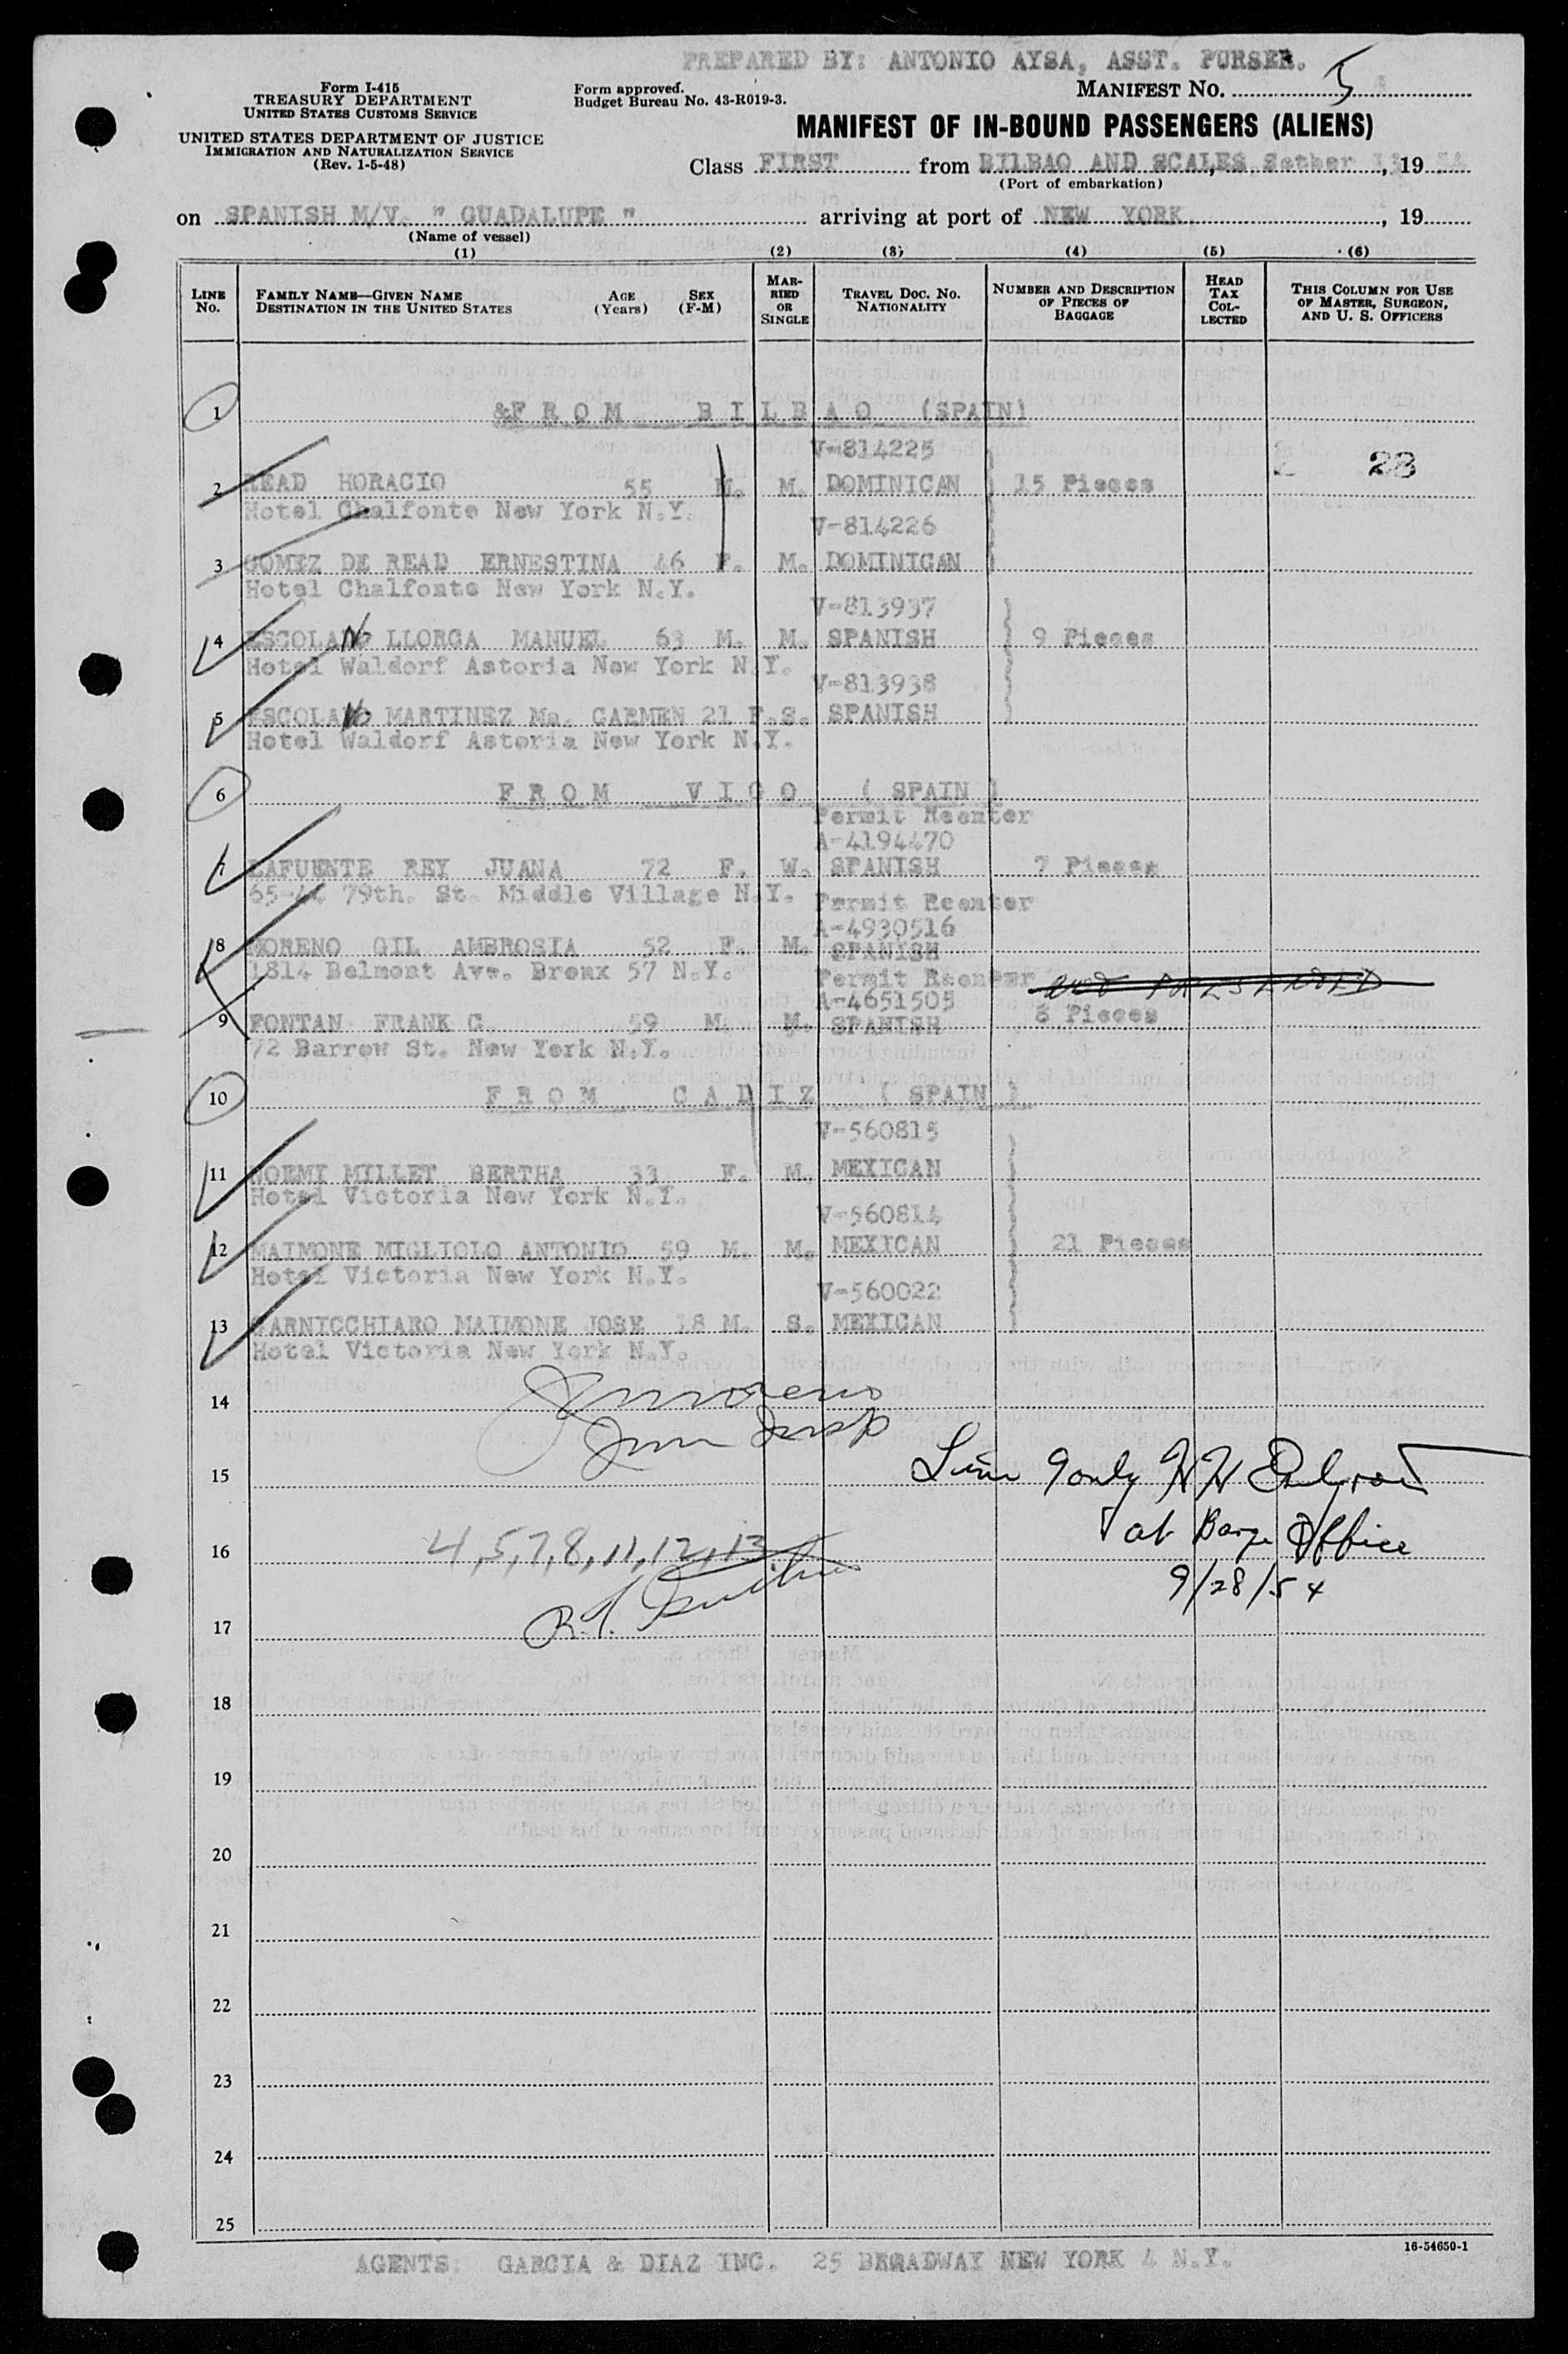 PREPARED BY: ANTONIO AYSA, ASST. PURSER.
Form I-415
TREASURY DEPARTMENT
UNITED STATES CUSTOMS SERVICE
UNITED STATES DEPARTMENT OF JUSTICE
IMMIGRATION AND NATURALIZATION SERVICE
(Rev. 1-5-48)
Form approved.
Budget Bureau No. 43-R019-3.
MANIFEST NO. 5
MANIFEST OF IN-BOUND PASSENGERS (ALIENS)
Class FIRST from BILBAO AND SCALES, Setber 13, 19 54
(Port of embarkation)
on SPANISH M/V. " GUADALUPE " arriving at port of NEW YORK, 19
(Name of vessel)
(1) (2) (3) (4) (5) (6)
LINE NO.
FAMILY NAME—GIVEN NAME
DESTINATION IN THE UNITED STATES
AGE (Years)
SEX (F-M)
MARRIED OR SINGLE
TRAVEL DOC. NO. NATIONALITY
NUMBER AND DESCRIPTION OF PIECES OF BAGGAGE
HEAD TAX COLLECTED
THIS COLUMN FOR USE OF MASTER, SURGEON, AND U. S. OFFICERS
1 &FROM BILBAO (SPAIN)
V-814225
2 READ HORACIO 55 M. M. DOMINICAN 15 Pieces 28
Hotel Chalfonte New York N.Y.
V-814226
3 GOMEZ DE READ ERNESTINA 46 F. M. DOMINICAN
Hotel Chalfonte New York N.Y.
V-813937
4 ESCOLANO LLORCA MANUEL 63 M. M. SPANISH 9 Pieces
Hotel Waldorf Astoria New York N.Y.
V-813938
5 ESCOLANO MARTINEZ Ma. CARMEN 21 F. S. SPANISH
Hotel Waldorf Astoria New York N.Y.
6 FROM VIGO ( SPAIN )
Permit Reenter
A-4194470
7 LAFUENTE REY JUANA 72 F. W. SPANISH 7 Pieces
65-44 79th. St. Middle Village N.Y.
Permit Reenter
A-4930516
8 MORENO GIL AMBROSIA 52 F. M. SPANISH
1814 Belmont Ave. Bronx 57 N.Y.
Permit Reenter
NOT PRESENTED
A-4651505
9 FONTAN FRANK C. 59 M. M. SPANISH 8 Pieces
72 Barrow St. New York N.Y.
10 FROM CADIZ ( SPAIN )
V-560815
11 NOEMI MILLET BERTHA 33 F. M. MEXICAN
Hotel Victoria New York N.Y.
V-560814
12 MAIMONE MIGLIOLO ANTONIO 59 M. M. MEXICAN 21 Pieces
Hotel Victoria New York N.Y.
V-560022
13 CARNICCHIARO MAIMONE JOSE 18 M. S. MEXICAN
Hotel Victoria New York N.Y.
14
Imm Insp
15 Line 9 only
at Barge Office
16 4, 5, 7, 8, 11, 12, 13
9/28/54
17
18
19
20
21
22
23
24
25
16-54650-1
AGENTS: GARCIA & DIAZ INC. 25 BROADWAY NEW YORK 4 N.Y.